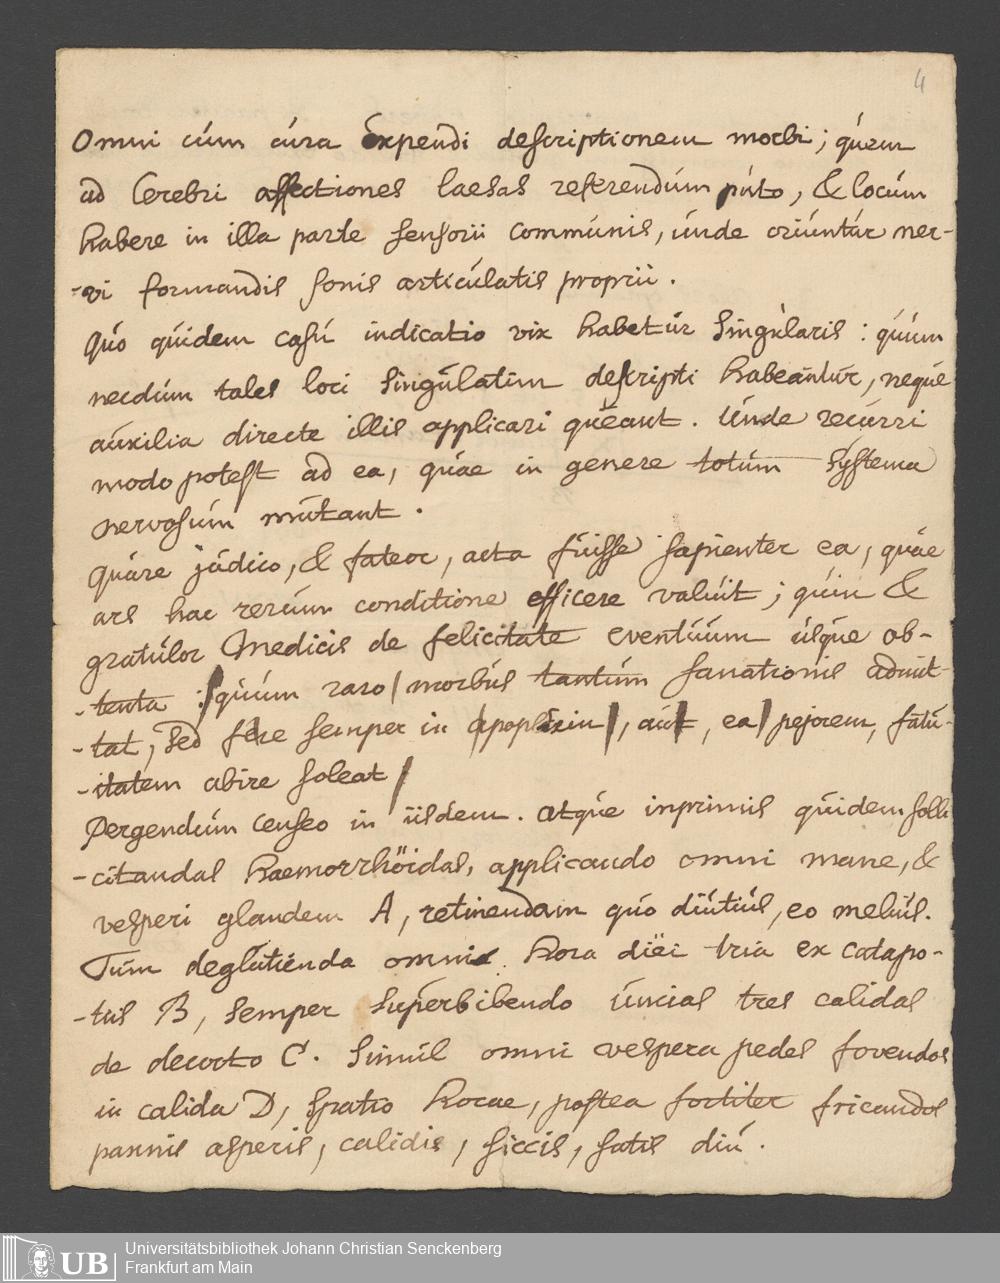 4
Omni cúm cúra Expendi descriptionem morbi; qúem
ad Cerebri affectiones laesas referendúm púto, & locúm
habere in illa parte sensorii commúnis, únde oriúntúr ner-
-vi formandis sonis articúlatis proprii.
Qúo qúidem casú indicatio vix habetúr singúlaris: qúúm
necdúm tales loci singúlatim descripti habeántúr, neqúe
aúxilia directe illis applicari qúéant. Únde recúrri
modo potest ad ea, qúae in genere totúm systema
nervosúm mútant.
Qúare júdico, & fateor, acta fúisse sapienter ea, qúae
ars hac rerúm conditione efficere valúit; qúin &
gratúlor Medicis de felicitate eventúúm úsqúe ob-
-tenta: qúúm raro morbús tantúm sanationis admit-
-tat, sed fere semper in apoplexin, aút, ea pejorem, fatú-
-itatem abire soleat
Pergendúm censeo in iisdem. atqúe inprimis qúidem solli
-citandas haemorrhöidas, applicando omni mane, &
vesperi glandem A, retinendam qúo diútiús, eo meliús.
Túm deglútienda omni hora diëi tria ex catapo-
-tiis B, semper súperbibendo úncias tres calidas
de decocto C. Simúl omni vespera pedes fovendos
in calida D, spatio horae, postea fortiter fricandos
pannis asperis, calidis, siccis, satis diú.
UB
Universitätsbibliothek Johann Christian Senckenberg
Frankfurt am Main